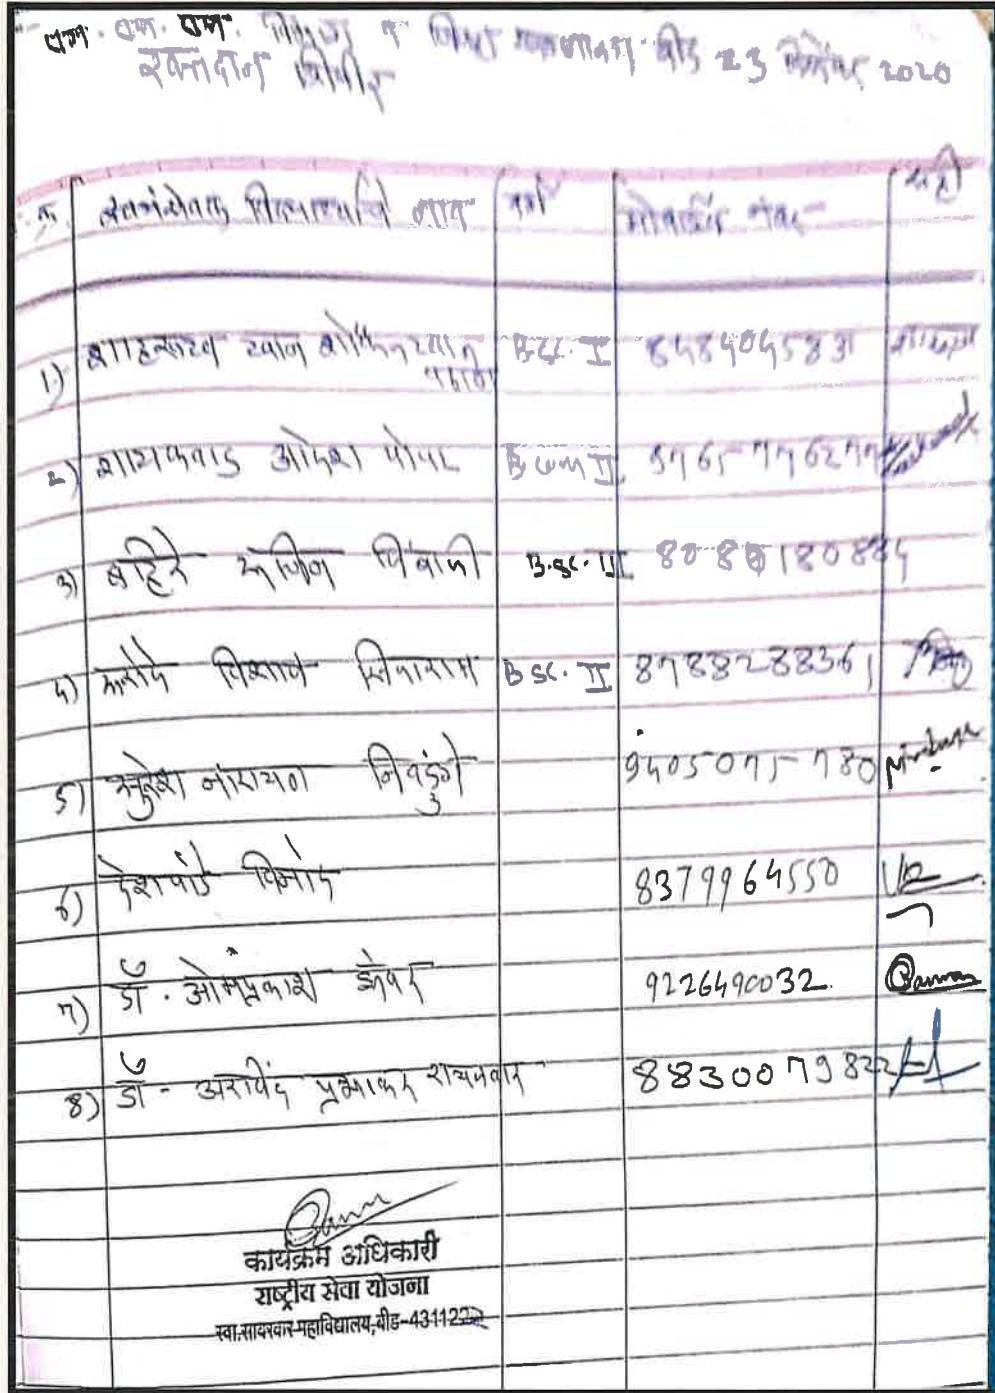 एन. एस. एस. विभाग व जिल्हा बीड 23 डिसेंबर 2020
रक्तदान शिबीर
अ.क्र. स्वयंसेवक विद्यार्थ्याचे नाव वर्ग मोबाईल नंबर सही
1) शाहरूख खान शौकत खान पठाण B.Sc. I 8484045831
2) गायकवाड ओमेश पोपट B.com II
3) बहिरे सचिन शिवाजी B.sc. III 8080180884
4) करांदे विशाल सिताराम B Sc. II 8788288361
5) सुरेश नारायण निवडुंगे 9405075780
6) देशपांडे विनोद 8379964550
7) डॉ. ओमप्रकाश झंवर 9226490032
8) डॉ - अरविंद प्रभाकर रायजवार 8830079822
कार्यक्रम अधिकारी
राष्ट्रीय सेवा योजना
स्वा.सावरकर महाविद्यालय,बीड-431122